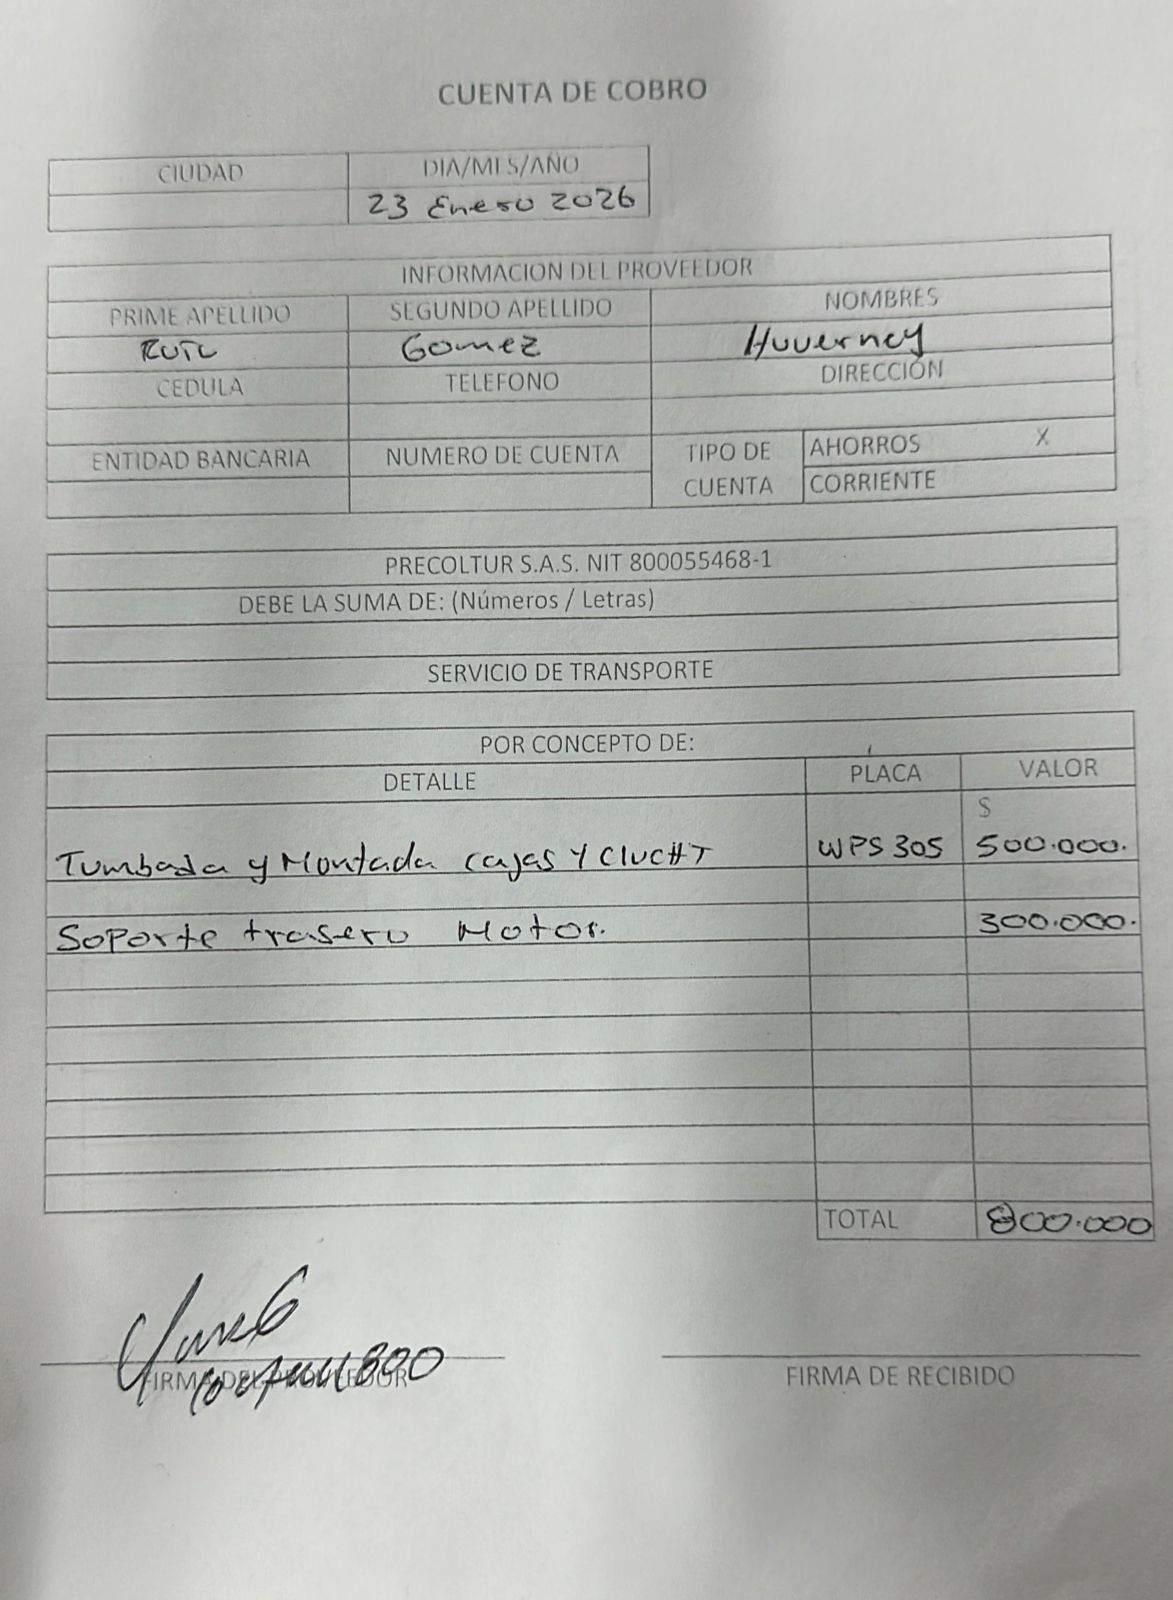 CUENTA DE COBRO
CIUDAD DIA/MES/AÑO
23 Enero 2026
INFORMACION DEL PROVEEDOR
PRIME APELLIDO SEGUNDO APELLIDO NOMBRES
Gomez Huverney
CEDULA TELEFONO DIRECCIÓN
ENTIDAD BANCARIA NUMERO DE CUENTA TIPO DE CUENTA AHORROS X
CORRIENTE
PRECOLTUR S.A.S. NIT 800055468-1
DEBE LA SUMA DE: (Números / Letras)
SERVICIO DE TRANSPORTE
POR CONCEPTO DE:
DETALLE PLACA VALOR
$
Tumbada y Montada cajas Y CluchT WPS 305 500.000.
Soporte trasero Motor. 300.000.
TOTAL 800.000
FIRMA DEL PROVEEDOR FIRMA DE RECIBIDO